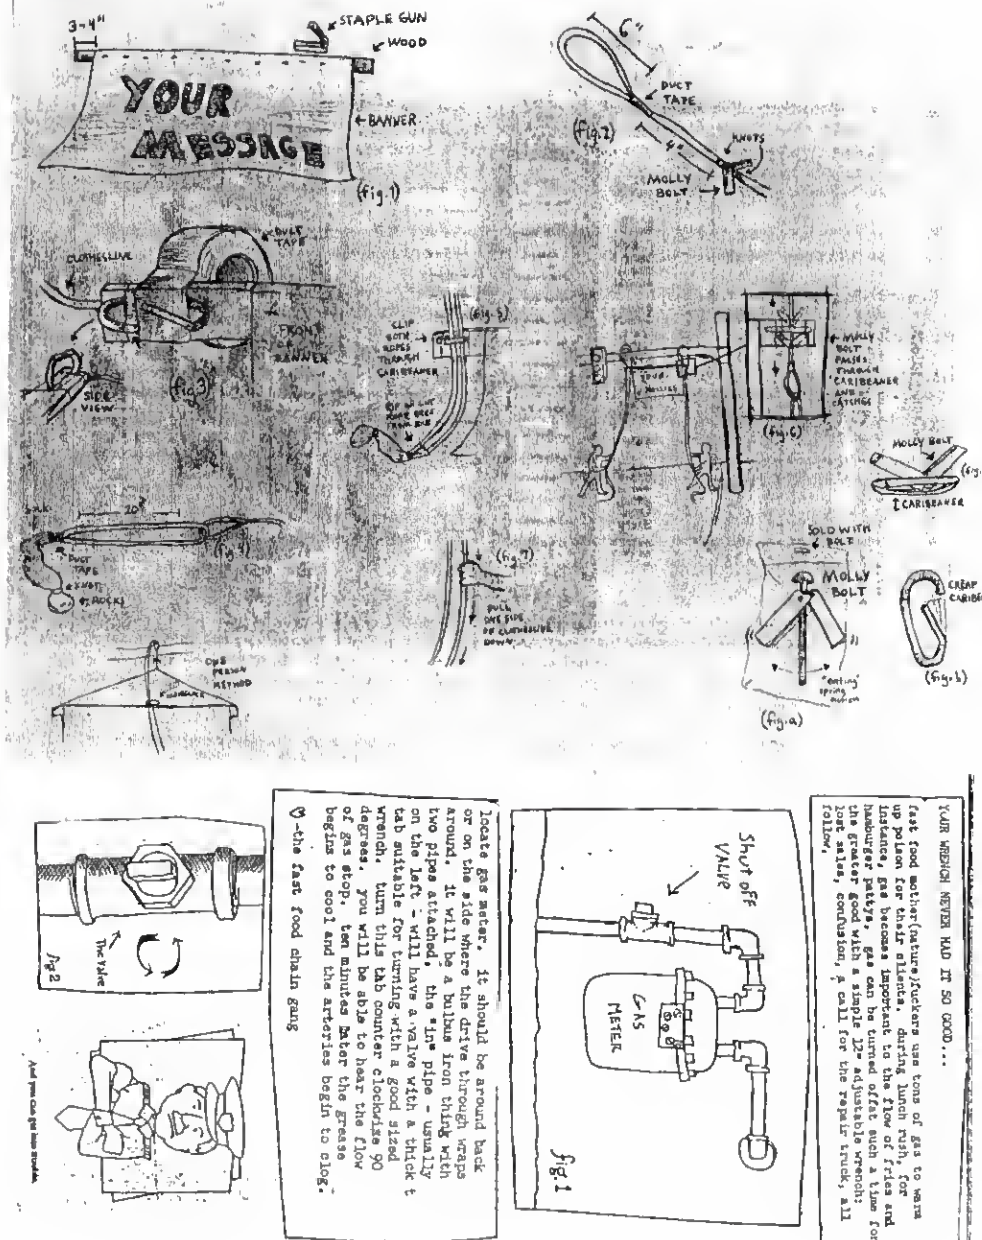 3-4"
STAPLE GUN
WOOD
YOUR
MESSAGE
BANNER
(fig.1)
6"
DUCT
TAPE
(fig.2)
4"
KNOTS
MOLLY
BOLT
CLOTHESLINE
DUCT
TAPE
FRONT
OF
BANNER
SIDE
VIEW
(fig 3)
(fig.5)
CLIP
BOTH
ROPES
THROUGH
CARIBEANER
MOLLY
BOLT
PASSES
THROUGH
CARIBEANER
AND
CATCHES
(fig.6)
MOLLY BOLT
(fig.
CARIBEANER
20'
(fig 4)
DUCT
TAPE
KNOT
ROCKS
(fig.7)
PULL
ONE SIDE
OF CLOTHESLINE
DOWN
SOLD WITH
BOLT
MOLLY
BOLT
spring
(fig.a)
CHEAP
CARIBE
(fig.b)
ONE
PERSON
METHOD
YOUR WRENCH NEVER HAD IT SO GOOD...
fast food mother(nature)fuckers use tons of gas to warm
up poison for their clients. during lunch rush, for
instance, gas becomes important to the flow of fries and
hamburger pattys. gas can be turned offat such a time for
the greater good with a simple 12" adjustable wrench:
lost sales, confusion, a call for the repair truck, all
follow.
Shut off
VALVE
GAS
METER
fig.1
locate gas meter. it should be around back
or on the side where the drive through wraps
around. it will be a bulbus iron think with
two pipes attached. the "in" pipe - usually
on the left - will have a valve with a thick t
tab suitable for turning with a good sized
wrench. turn this tab counter clockwise 90
degrees. you will be able to hear the flow
of gas stop. ten minutes later the grease
begins to cool and the arteries begin to clog.
-the fast food chain gang
The Valve
fig 2